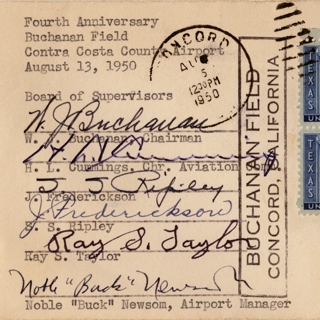 Fourth Anniversary
Buchanan Field
Contra Costa County Airport
August 13, 1950
CONCORD
AUG
5
12 30 PM
1950
Board of Supervisors
W. J. Buchanan
W. J. Buchanan, Chairman
H. L. Cummings
H. L. Cummings, Chr. Aviation Com.
S. S. Ripley
J. Frederickson
J. Frederickson
S. S. Ripley
Ray S. Taylor
Ray S. Taylor
Noble "Buck" Newsom
Noble "Buck" Newsom, Airport Manager
BUCHANAN FIELD
CONCORD, CALIFORNIA
TEXAS
UN
TEXAS
UN